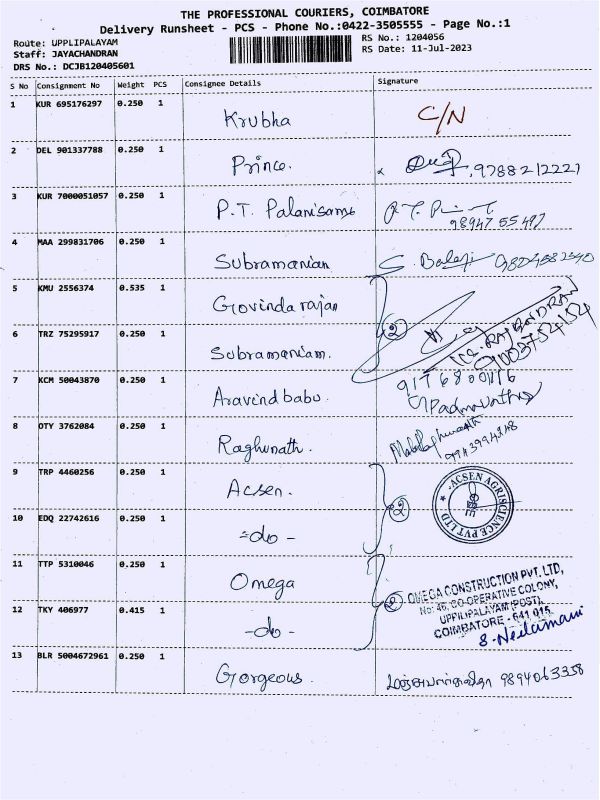 THE PROFESSIONAL COURIERS, COIMBATORE
Delivery Runsheet - PCS - Phone No.:0422-3505555 - Page No.:1
Route: UPPLIPALAYAM
Staff: JAYACHANDRAN
DRS No.: DCJB120405601
RS No.: 1204056
RS Date: 11-Jul-2023
S No Consignment No Weight PCS Consignee Details Signature
1 KUR 695176297 0.250 1 Krubha C/N
2 DEL 901337788 0.250 1 Prince. 9788212221
3 KUR 7000051057 0.250 1 P.T. Palanisamy
9894755497
4 MAA 299831706 0.250 1 Subramanian S. Balaji
5 KMU 2556374 0.535 1 Govindarajan
2
6 TRZ 75295917 0.250 1 Subramaniam.
9003754154
7 KCM 50043870 0.250 1 Aravind babu
Padmavathy
8 OTY 3762084 0.250 1 Raghunath.
9 TRP 4460256 0.250 1 Acsen.
ACSEN AGRISCIENCE PVT LTD
2
10 EDQ 22742616 0.250 1 =do -
11 TTP 5310046 0.250 1 Omega
2
OMEGA CONSTRUCTION PVT. LTD,
No: 46, CO-OPERATIVE COLONY,
UPPILIPALAYAM (POST),
COIMBATORE - 641 015.
12 TKY 406977 0.415 1 -do-
S. Neelamani
13 BLR 5004672961 0.250 1 Gorgeous. 9894063358